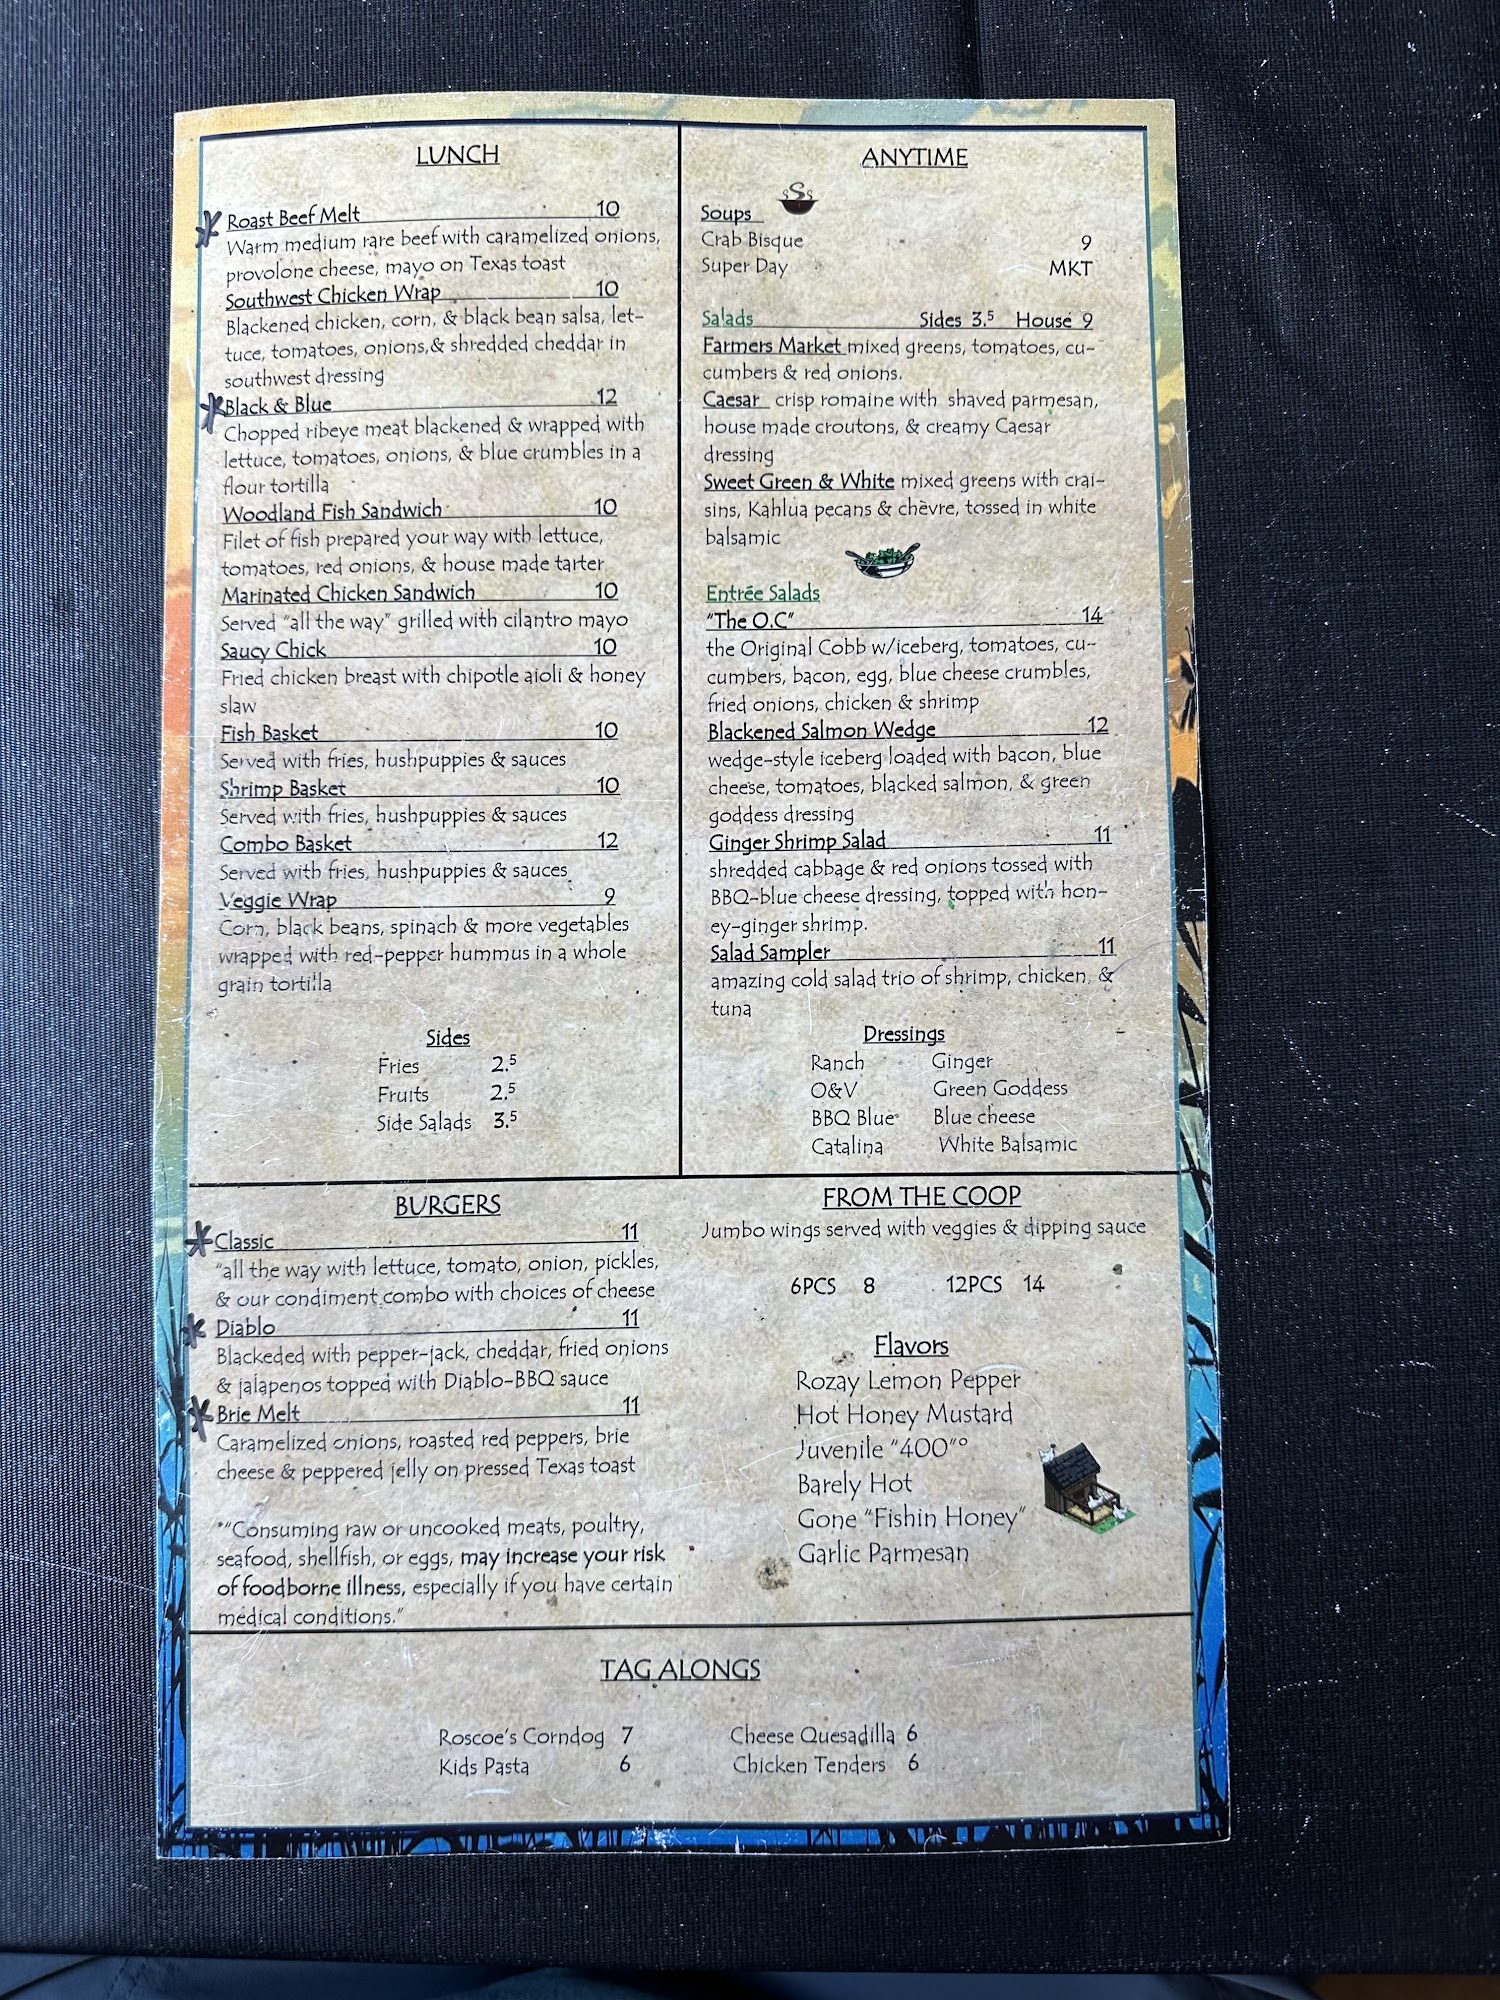 LUNCH
* Roast Beef Melt 10
Warm medium rare beef with caramelized onions,
provolone cheese, mayo on Texas toast
Southwest Chicken Wrap 10
Blackened chicken, corn, & black bean salsa, let-
tuce, tomatoes, onions,& shredded cheddar in
southwest dressing
* Black & Blue 12
Chopped ribeye meat blackened & wrapped with
lettuce, tomatoes, onions, & blue crumbles in a
flour tortilla
Woodland Fish Sandwich 10
Filet of fish prepared your way with lettuce,
tomatoes, red onions, & house made tarter
Marinated Chicken Sandwich 10
Served "all the way" grilled with cilantro mayo
Saucy Chick 10
Fried chicken breast with chipotle aioli & honey
slaw
Fish Basket 10
Served with fries, hushpuppies & sauces
Shrimp Basket 10
Served with fries, hushpuppies & sauces
Combo Basket 12
Served with fries, hushpuppies & sauces
Veggie Wrap 9
Corn, black beans, spinach & more vegetables
wrapped with red-pepper hummus in a whole
grain tortilla
Sides
Fries 2.5
Fruits 2.5
Side Salads 3.5
ANYTIME
Soups
Crab Bisque 9
Super Day MKT
Salads Sides 3.5 House 9
Farmers Market mixed greens, tomatoes, cu-
cumbers & red onions.
Caesar crisp romaine with shaved parmesan,
house made croutons, & creamy Caesar
dressing
Sweet Green & White mixed greens with crai-
sins, Kahlua pecans & chèvre, tossed in white
balsamic
Entrée Salads
"The O.C" 14
the Original Cobb w/iceberg, tomatoes, cu-
cumbers, bacon, egg, blue cheese crumbles,
fried onions, chicken & shrimp
Blackened Salmon Wedge 12
wedge-style iceberg loaded with bacon, blue
cheese, tomatoes, blacked salmon, & green
goddess dressing
Ginger Shrimp Salad 11
shredded cabbage & red onions tossed with
BBQ-blue cheese dressing, topped with hon-
ey-ginger shrimp.
Salad Sampler 11
amazing cold salad trio of shrimp, chicken, &
tuna
Dressings
Ranch Ginger
O&V Green Goddess
BBQ Blue Blue cheese
Catalina White Balsamic
BURGERS
* Classic 11
"all the way with lettuce, tomato, onion, pickles,
& our condiment combo with choices of cheese
* Diablo 11
Blackeded with pepper-jack, cheddar, fried onions
& jalapenos topped with Diablo-BBQ sauce
* Brie Melt 11
Caramelized onions, roasted red peppers, brie
cheese & peppered jelly on pressed Texas toast
*"Consuming raw or uncooked meats, poultry,
seafood, shellfish, or eggs, may increase your risk
of foodborne illness, especially if you have certain
medical conditions."
FROM THE COOP
Jumbo wings served with veggies & dipping sauce
6PCS 8 12PCS 14
Flavors
Rozay Lemon Pepper
Hot Honey Mustard
Juvenile "400"°
Barely Hot
Gone "Fishin Honey"
Garlic Parmesan
TAG ALONGS
Roscoe's Corndog 7 Cheese Quesadilla 6
Kids Pasta 6 Chicken Tenders 6